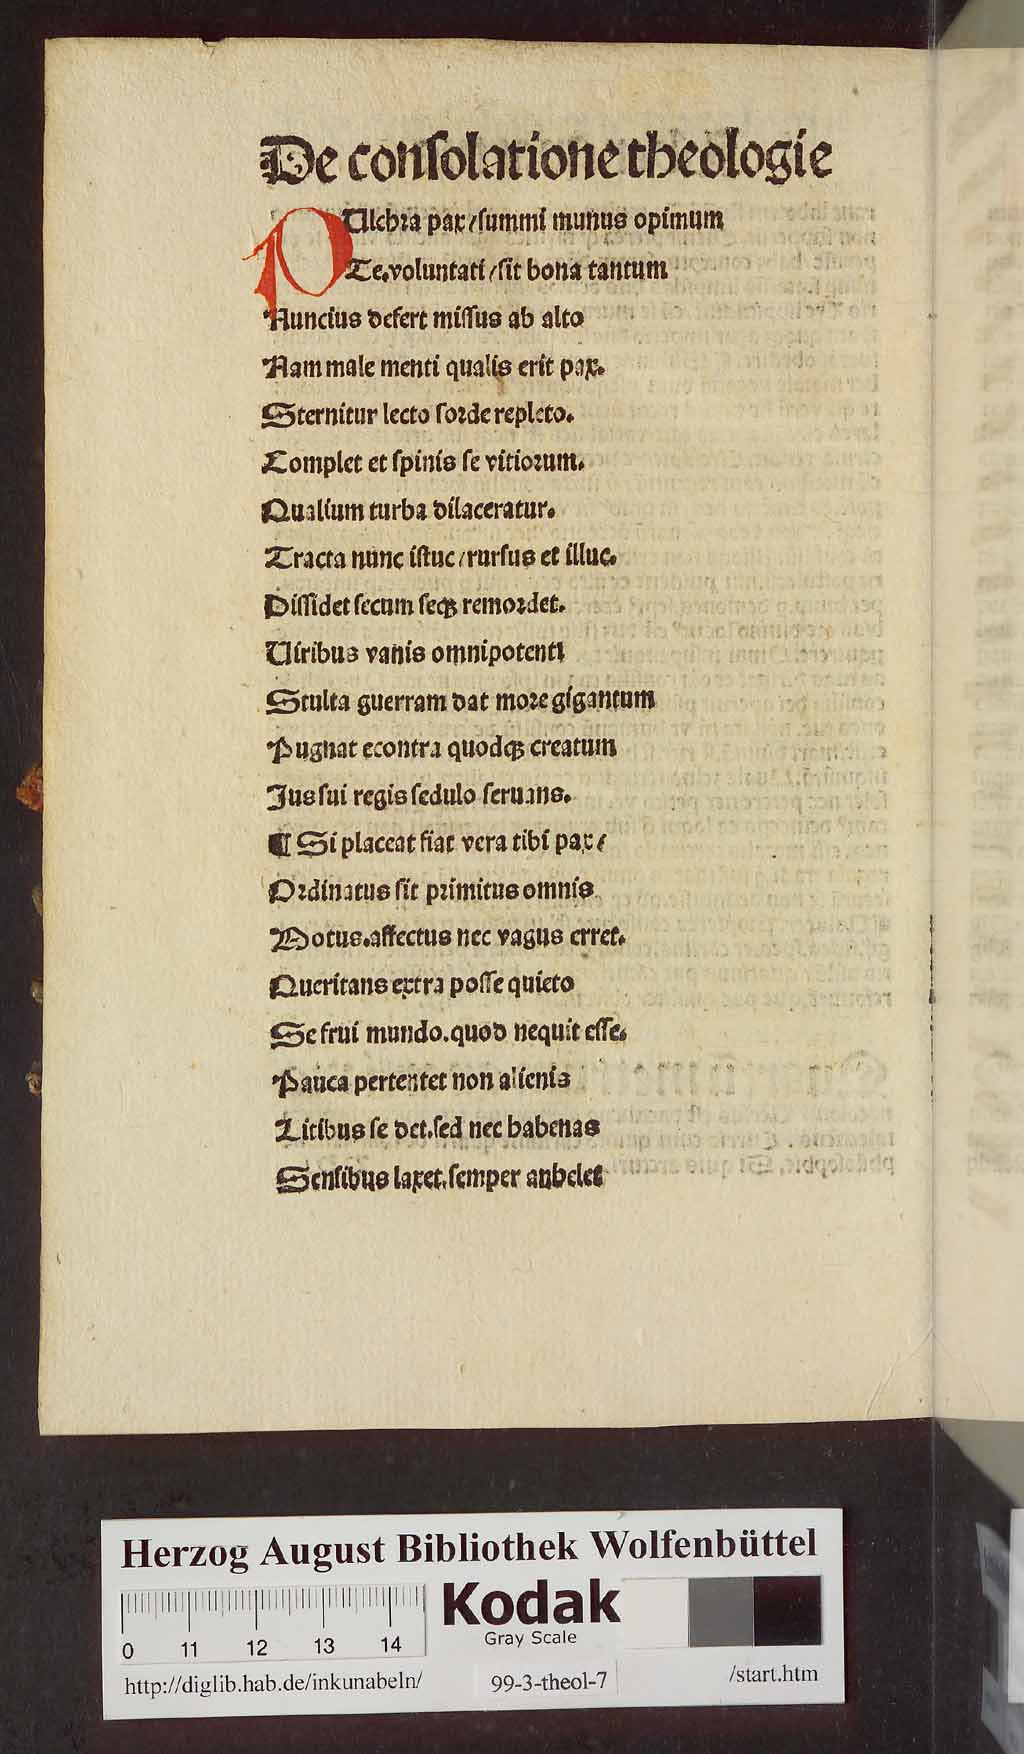 De consolatione theologie
PUlchra pax/summi munus opimum
Te.voluntati/sit bona tantum
Nuncius defert missus ab alto
Nam male menti qualis erit pax.
Sternitur lecto sorde repleto.
Complet et spinis se vitiorum.
Qualium turba dilaceratur.
Tracta nunc istuc/rursus et illuc.
Dissidet secum seqꝫ remordet.
Uiribus vanis omnipotenti
Stulta guerram dat more gigantum
Pugnat econtra quodqꝫ creatum
Jus sui regis sedulo seruans.
¶ Si placeat fiat vera tibi pax/
Ordinatus sit primitus omnis
Motus.affectus nec vagus erret.
Queritans extra posse quieto
Se frui mundo.quod nequit esse.
Pauca pertentet non alienis
Litibus se det.sed nec habenas
Sensibus laxet.semper anhelet
Herzog August Bibliothek Wolfenbüttel
0 11 12 13 14
Kodak
Gray Scale
http://diglib.hab.de/inkunabeln/ 99-3-theol-7 /start.htm